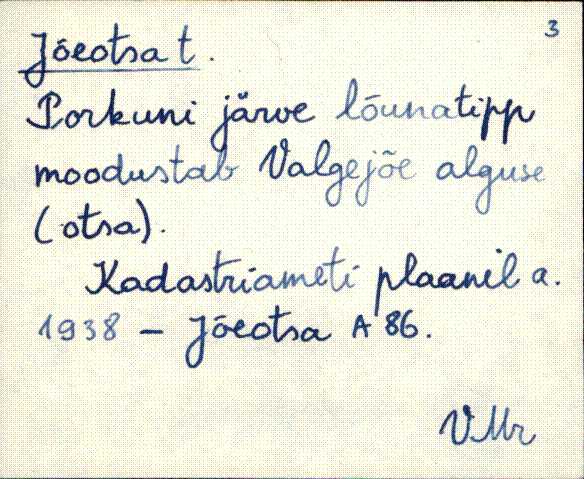 3
Jõeotsa t.
Porkuni järve lõunatipp
moodustab Valgejõe alguse
(otsa).
Kadastriameti plaanil a.
1938 – Jõeotsa A 86.
VMr